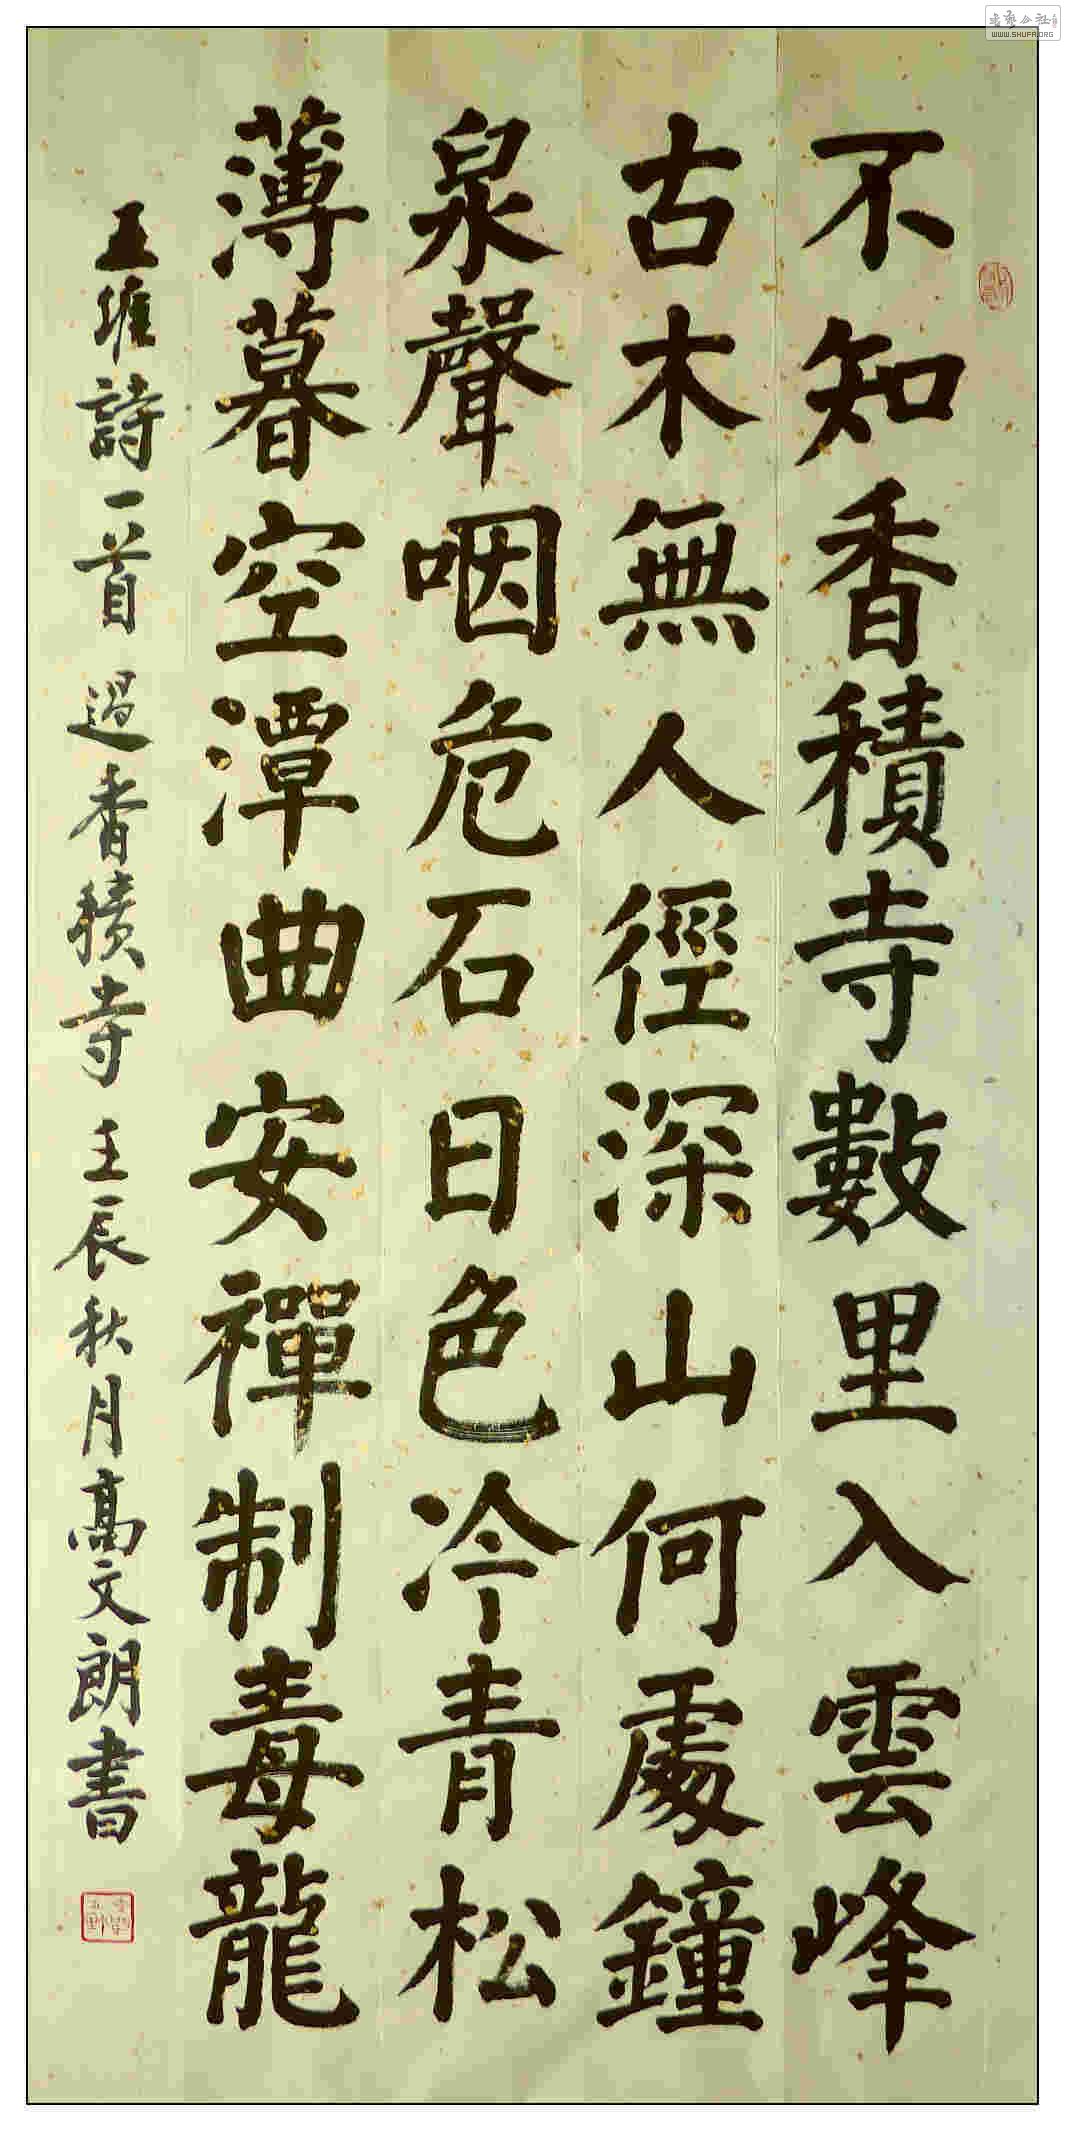 不知香積寺數里入雲峰
古木無人徑深山何處鐘
泉聲咽危石日色冷青松
薄暮空潭曲安禪制毒龍
王維詩一首 過香積寺 壬辰秋月高文朗書
书艺公社
WWW.SHUFA.ORG